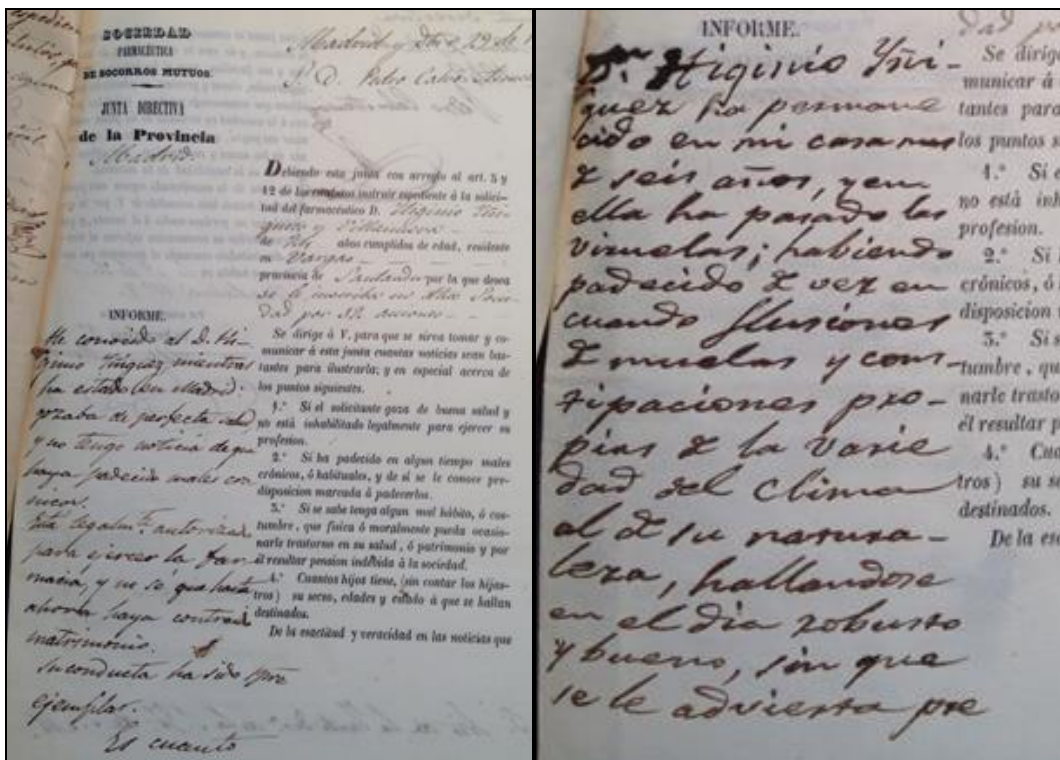 SOCIEDAD
FARMACÉUTICA
DE SOCORROS MUTUOS.
JUNTA DIRECTIVA
de la Provincia
Madrid.
Madrid y 29 de
S. D. Pedro Calvo
Debiendo esta junta con arreglo al art. 5 y
12 de los instruir espediente á la solici-
tud del farmacéutico D. Higinio Yñi-
guez y Villanueva
de años cumplidos de edad, residente
en Vargas
provincia de Santander por la que desea
se le inscriba en dha Socie-
dad por acciones
Se dirige á V. para que se sirva tomar y co-
municar á esta junta cuantas noticias sean bas-
tantes para ilustrarla; y en especial acerca de
los puntos siguientes.
1.º Si el solicitante goza de buena salud y
no está inhabilitado legalmente para ejercer su
profesion.
2.º Si ha padecido en algun tiempo males
crónicos, ó habituales, y de si se le conoce pre-
disposicion marcada á padecerlos.
3.º Si se sabe tenga algun mal hábito, ó cos-
tumbre, que física ó moralmente pueda ocasio-
narle trastorno en su salud, ó patrimonio y por
él resultar pension indebida á la sociedad.
4.º Cuantos hijos tiene, (sin contar los hijas-
tros) su secso, edades y estado á que se hallan
destinados.
De la esactitud y veracidad en las noticias que
INFORME.
He conocido al D. Hi-
ginio Yñiguez mientras
ha estado en Madrid:
gozaba de perfecta salud
y no tengo noticia de que
haya padecido males con
Está legalmte. autorizado
para ejercer la Far-
macia, y no sé que hasta
ahora haya contraido
matrimonio.
Su conducta ha sido spre
ejemplar.
Es cuanto
INFORME.
Dn. Higinio Yñi-
guez ha permane
cido en mi casa mas
de seis años, y en
ella ha pasado las
viruelas; habiendo
padecido de vez en
cuando fluxiones
de muelas y cons-
tipaciones pro-
pias de la varie
dad del clima
al de su natura-
leza, hallandose
en el dia robusto
y bueno, sin que
se le advierta pre
Se dirige
municar á
tantes para
los puntos s
1.º Si e
no está inh
profesion.
2.º Si
crónicos, ó
disposicion
3.º Si s
tumbre, qu
narle trasto
él resultar p
4.º Cua
tros) su se
destinados.
De la esa